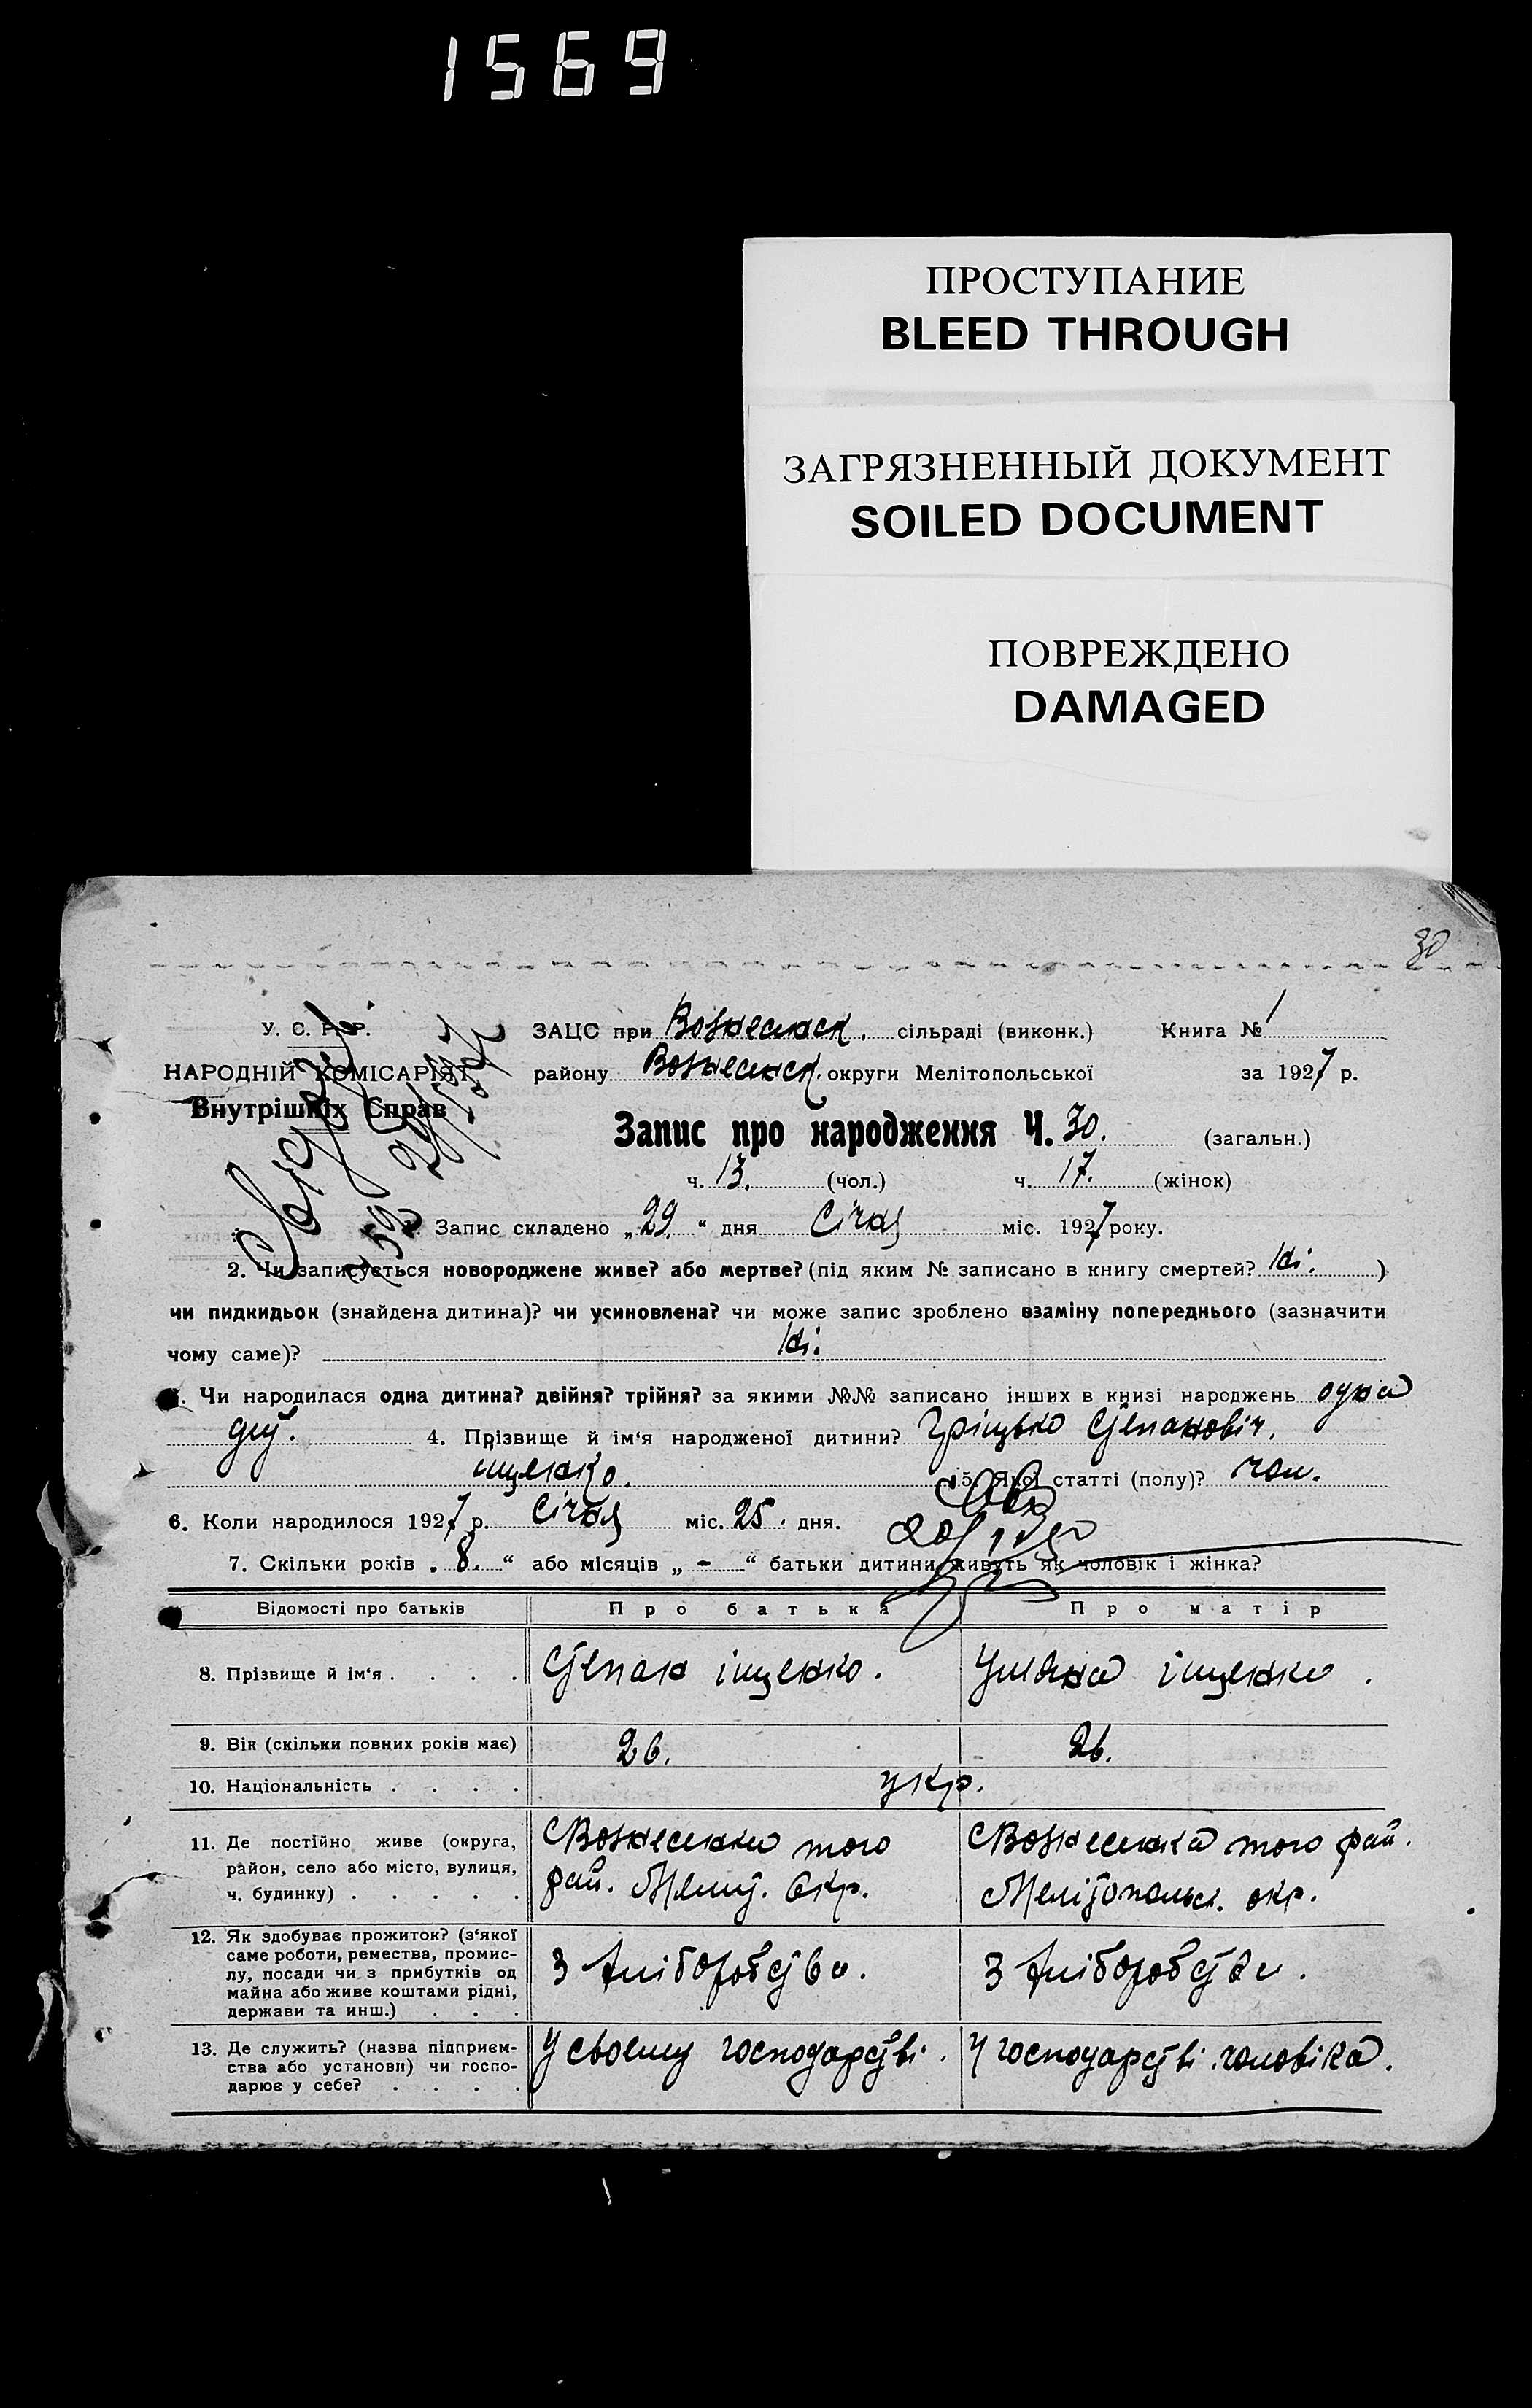 1569
ПРОСТУПАНИЕ
BLEED THROUGH
ЗАГРЯЗНЕННЫЙ ДОКУМЕНТ
SOILED DOCUMENT
ПОВРЕЖДЕНО
DAMAGED
30
У. С. Р. Р.
НАРОДНІЙ КОМІСАРІЯТ
Внутрішніх Справ
ЗАЦС при Вознесенск. сільраді (виконк.) Книга № 1
району Вознесенск. округи Мелітопольської за 1927 р.
Запис про народження Ч. 30. (загальн.)
ч. 13. (чол.) ч. 17. (жінок)
1. Запис складено „29.“ дня Січня міс. 1927 року.
2. Чи записується новороджене живе? або мертве? (під яким № записано в книгу смертей? Ні. )
чи пидкидьок (знайдена дитина)? чи усиновлена? чи може запис зроблено взаміну попереднього (зазначити
чому саме)? Ні.
3. Чи народилася одна дитина? двійня? трійня? за якими №№ записано інших в книзі народжень одна
дит. 4. Прізвище й ім'я народженої дитини? Гріцько Степановіч.
іщенко. 5. Якої статті (полу)? чол.
6. Коли народилося 1927 р. Січня міс. 25. дня.
7. Скільки років „8.“ або місяців „-“ батьки дитини живуть як чоловік і жінка?
Відомості про батьків Про батька Про матір
8. Прізвище й ім'я . . . . Степан іщенко. Уляна іщенко.
9. Вік (скільки повних років має) 26. 26.
10. Національність . . . . укр.
11. Де постійно живе (округа,
район, село або місто, вулиця,
ч. будинку) . . . . .
Вознесенка того
рай. Меліт. Окр.
Вознесенка того рай.
Мелітопольс. окр.
12. Як здобуває прожиток? (з'якої
саме роботи, ремества, промис-
лу, посади чи з прибутків од
майна або живе коштами рідні,
держави та инш.) . . .
З хліборобства.
З хліборобства.
13. Де служить? (назва підприєм-
ства або установи) чи госпо-
дарює у себе? . . . .
У своєму господарстві.
У господарстві чоловіка.